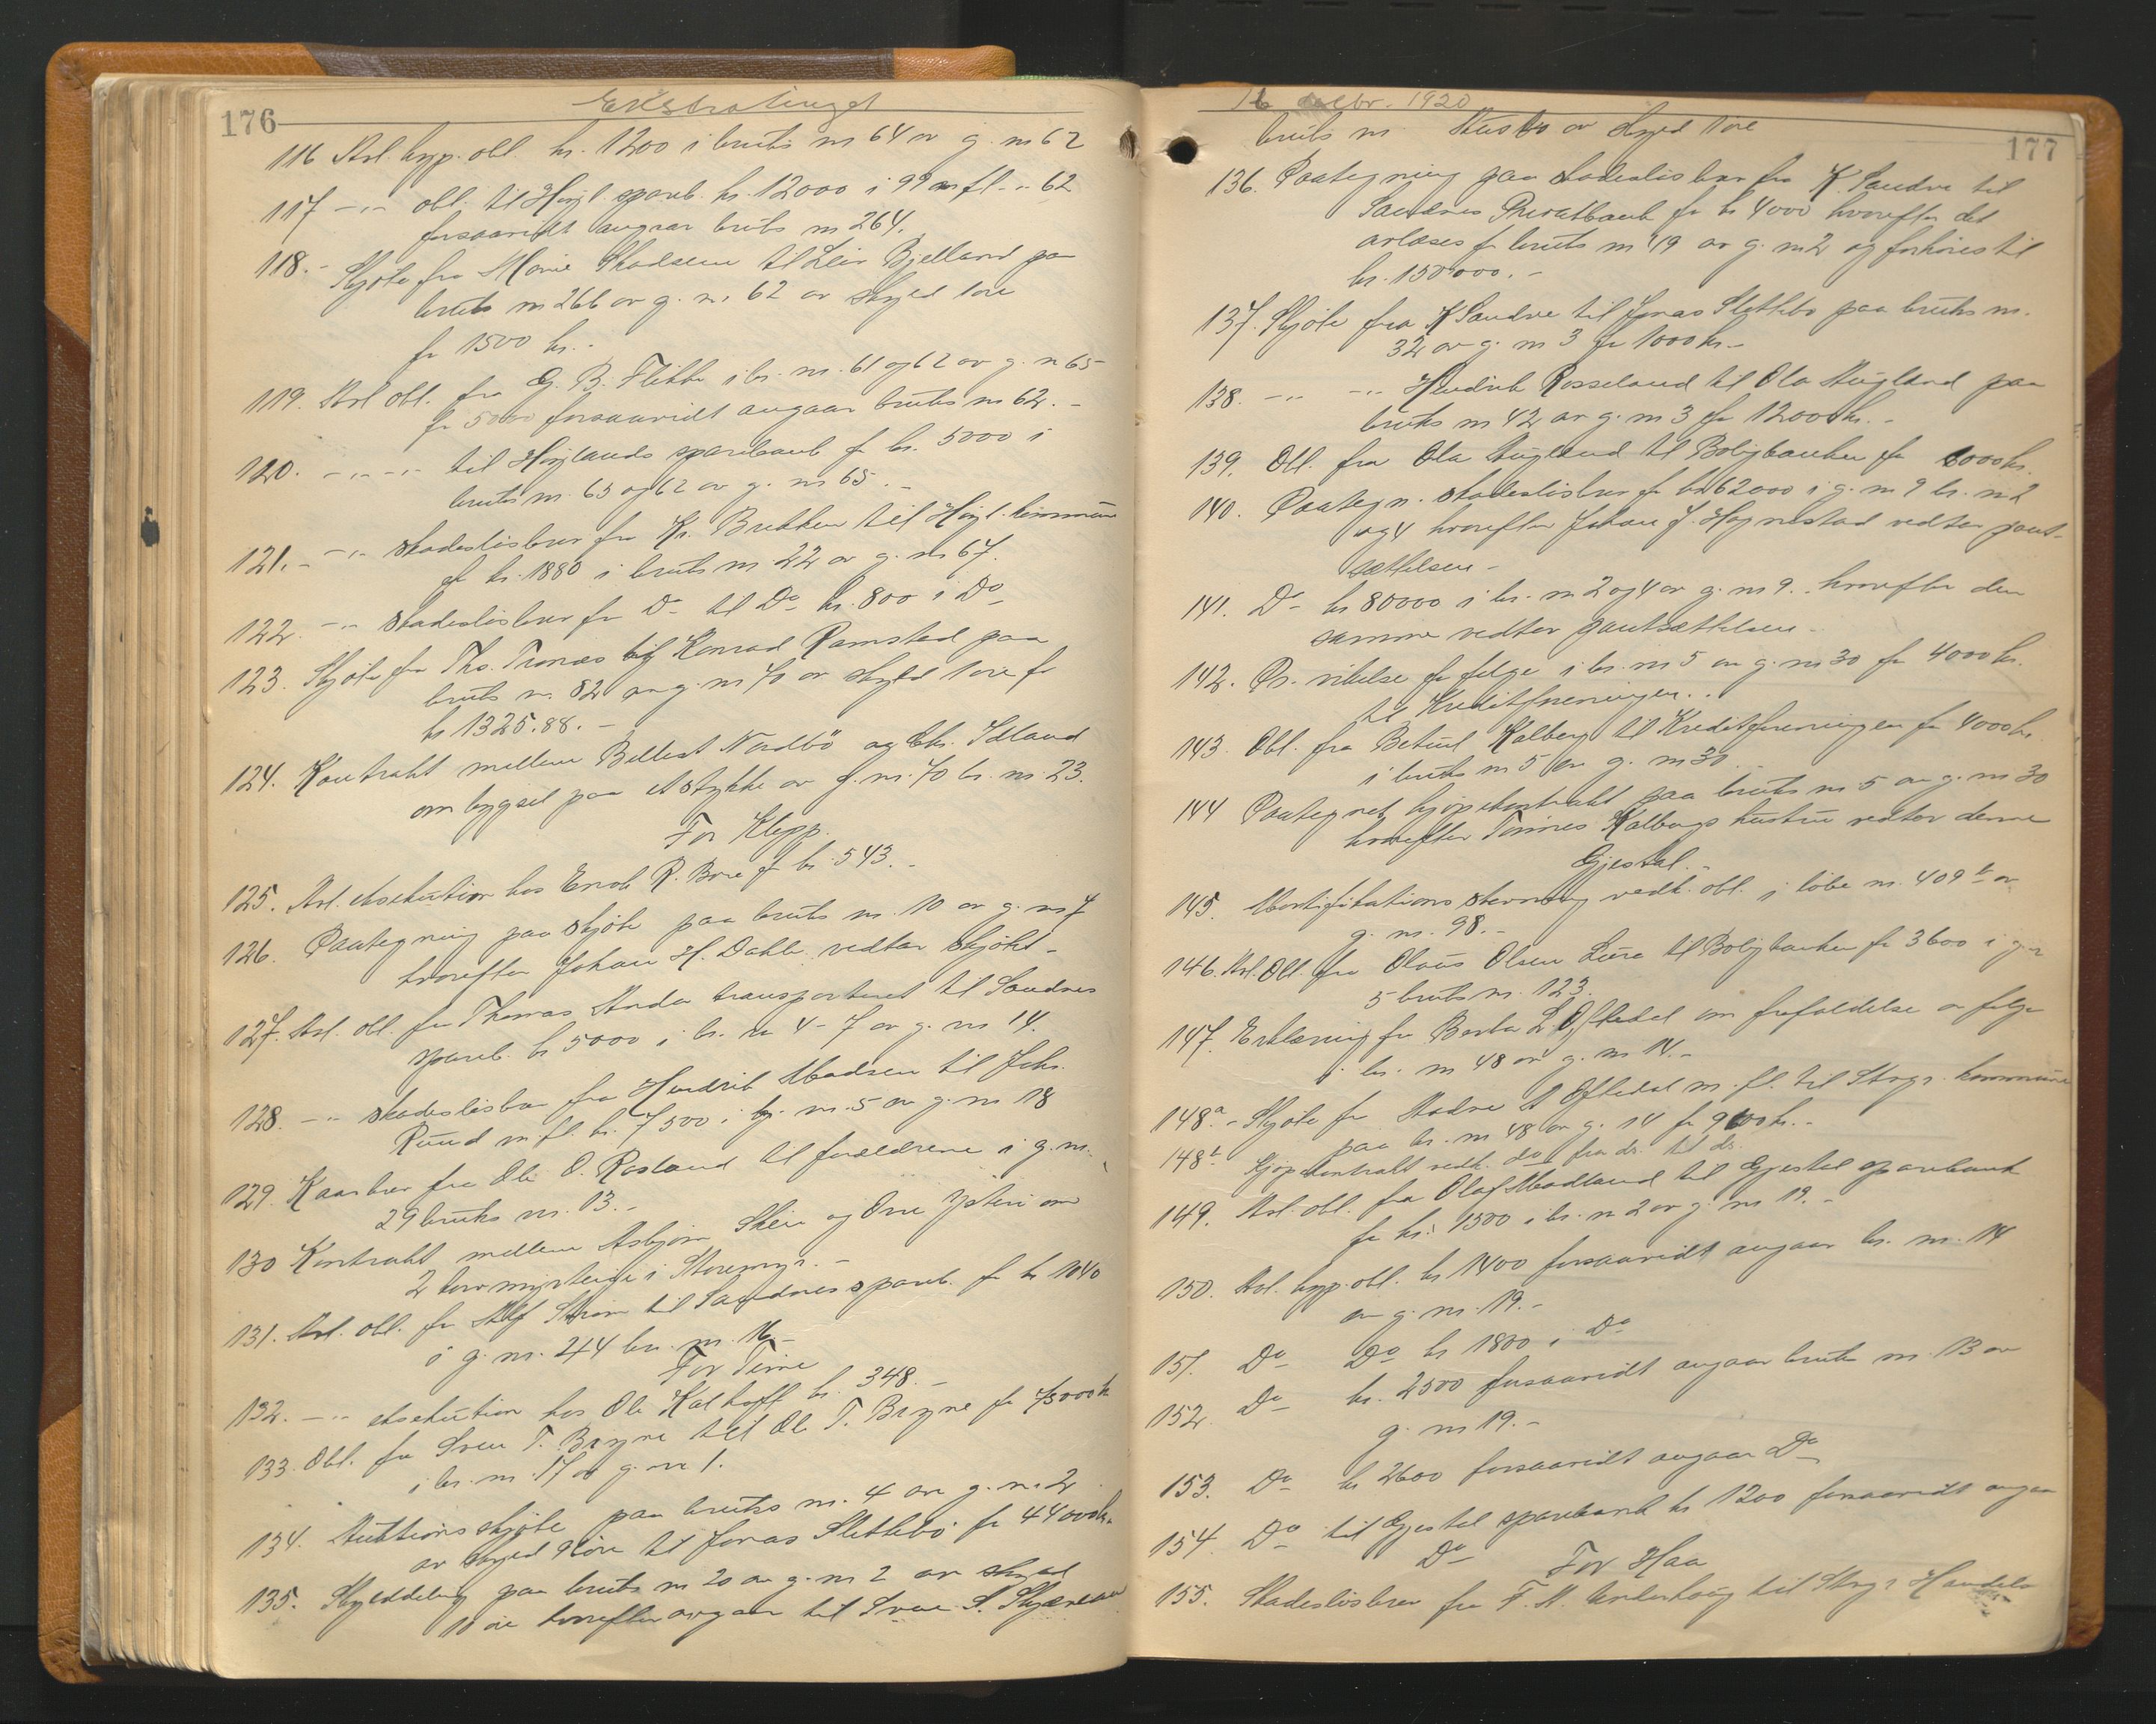 176
Ekstratinget
116 Avl. hyp. obl. kr. 1200 i bruks nr 64 av g. nr 62
117 -"- obl. til Høyl. spareb. kr. 12000 i 99 m fl. " 62
forsaavidt angaar bruks nr 264.
118.- Skjøte fra Marie Skadsem til Leiv Bjelland paa
bruks nr 266 av g. nr 62 av skyld 1 øre
for 1500 kr.-
119. Avl obl. fra G. B. Flikke i br. nr. 61 og 62 av g. n 65
fr 5000 forsaavidt angaar bruks nr 62.-
120. -"- -"- til Høylands sparebank for kr. 5000 i
bruks nr. 63 og 62 av g. nr 65.-
121.- -"- skadesløsbrev fra Kr. Brekken til Høyl. kommune
for kr. 1880 i bruks nr 22 av g. nr 67.
122. -"- skadesløsbrev fra Do til Do kr. 800 i Do
123. Skjøte fra Ths. Tronæs til Konrad Ramstad paa
bruks nr. 82 av g. nr 70 av skyld 1 øre for
kr 1325.88.-
124. Kontrakt mellem Bellest Nordbö og Chr. Idland
om bygsel paa et stykke av g. nr. 70 br. nr 23.
For Klepp.
125. Avl. eksekution hos Enok R. Bore for kr. 543.-
126. Paategning paa skjøte paa bruks nr. 10 av g. nr 7
hvorefter Johan H. Dahle vedtar skjøtet-
127. Avl. obl. fra Thomas Anda transporteret til Sandnes
spareb. kr 5000 i br. nr 4-7 av g. nr 14.
128. -"- skadesløsbrev fra Hendrik Madsen til Johs.
Ruud m. fl. kr. 7500 i br. nr. 5 av g. nr 18
129. Kaarbrev fra Ole O. Rosland til forældrene i g. nr.
29 bruks nr. 13.-
130 Kontrakt mellem Asbjørn Skeie og Orre Ysteri om
2 torvmyrteige i Storemyr.-
131. Avl. obl. fra Alf Strøm til Sandnes spareb. for kr 1040
i g. nr. 24 br. nr. 16-
For Time
132. -"- eksekution hos Ole Kalhoff kr. 348.-
133. Obl. fra Sven T. Bryne til Ole T. Bryne for 75000 kr
i br. nr. 17 av g. nr 1.
134. Auktionsskjøte paa bruks nr. 4 av g. nr 2
av skyld 9 øre til Jonas Slettebö for 44000 kr.
135. Skylddeling paa bruks nr 20 av g. nr 2 av skyld
10 øre hvorefter avgaar til Svein S. Skjæveland
16 decbr. 1920
177
bruks nr. Husbo av skyld 1 øre
136. Paategning paa skadesløsbrev fra K. Sandve til
Sandnes Privatbank for kr 4000 hvorefter det
avlæses for bruks nr 19 av g. nr 2 og forhöies til
kr. 150000.-
137. Skjøte fra K Sandve til Jonas Slettebö paa bruks nr.
32 av g. nr 3 for 1000 kr.-
138. -"- -"- Hendrik Rosseland til Ola Augland paa
bruks nr 42 av g. nr 3 for 12000 kr.-
139. Obl. fra Ola Augland til Boligbanken for 6000 kr.
140. Paategn. skadesløsbrev for kr 62000 i g. nr 9 br. nr 2
og 4 hvorefter Johan J. Høynestad vedtar pant-
sættelsen-
141. Do kr 80000 i br. nr 2 og 4 av g. nr 9. hvorefter den
samme vedtar pantsættelsen-
142. Pr. vikelse for følge i br. nr 5 av g. nr 30 for 4000 kr.
til Kreditforeningen..
143. Obl. fra Betuel Kalberg til Kreditforeningen for 4000 kr.
i bruks nr 5 av g. nr 30.
144 Paategnet kjøpekontrakt paa bruks nr 5 av g. nr 30
hvorefter Tønnes Kalbergs hustru vedtar denne
Gjestal.-
145. Mortifikations stevning vedk. obl. i løbe nr. 409 b av
g. nr. 98.-
146. Avl. Obl. fra Olaus Olsen Lura til Boligbanken for 3600 i g. nr
5 bruks nr. 123.
147. Erklæring fra Berta L. Oftedal om frafaldelse av følge
i br. nr 48 av g. nr 14.-
148a.- Skjøte fra Andre A Oftedal m. fl. til Stvgr. kommune
paa br. nr 48 av g. 14 for 9600 kr.-
148b Kjøpekontrakt vedk. do fra do. til do.
149. Avl. obl. fra Olaf Madland til Gjestal sparebank
for kr. 1500 i br. nr 2 av g. nr 19.-
150. Avl. hyp. obl. kr 1400 forsaavidt angaar br. nr. 14
av g. nr. 19.-
151. Do Do kr 1800 i Do
152. Do kr. 2500 forsaavidt angaar bruks nr. 13 av
g. nr 19.-
153. Do kr 2600 forsaavidt angaar Do
154. Do til Gjestal sparebank kr 1200 forsaavidt angaar
Do
For Haa
155. Skadesløsbrev fra T. A. Underhaug til Stvgr Handels